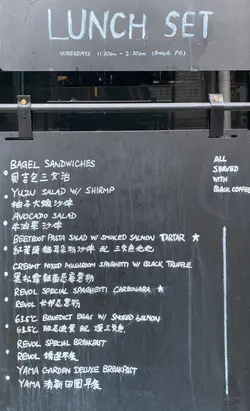 LUNCH SET
WEEKDAYS 11:30am - 2:30pm (Except PH)
BAGEL SANDWICHES
貝吉包三文治
YUZU SALAD W/ SHIRMP
柚子大蝦沙律
AVOCADO SALAD
牛油果沙律
BEETROOT PASTA SALAD W/ SMOKED SALMON TARTAR ★
紅菜頭 沙律 配 三文魚
CREAMY MIXED MUSHROOM SPAGHETTI W/ BLACK TRUFFLE
黑松露 意粉
REVOL SPECIAL SPAGHETTI CARBONARA ★
REVOL 卡邦尼意粉
63.5℃ BENEDICT EGGS W/ SMOKED SALMON
63.5℃ 配 煙三文魚
REVOL SPECIAL BREAKFAST
REVOL 精選早餐
YAMA GARDEN DELUXE BREAKFAST
YAMA 清新田園早餐
ALL
SERVED
WITH
BLACK COFFEE